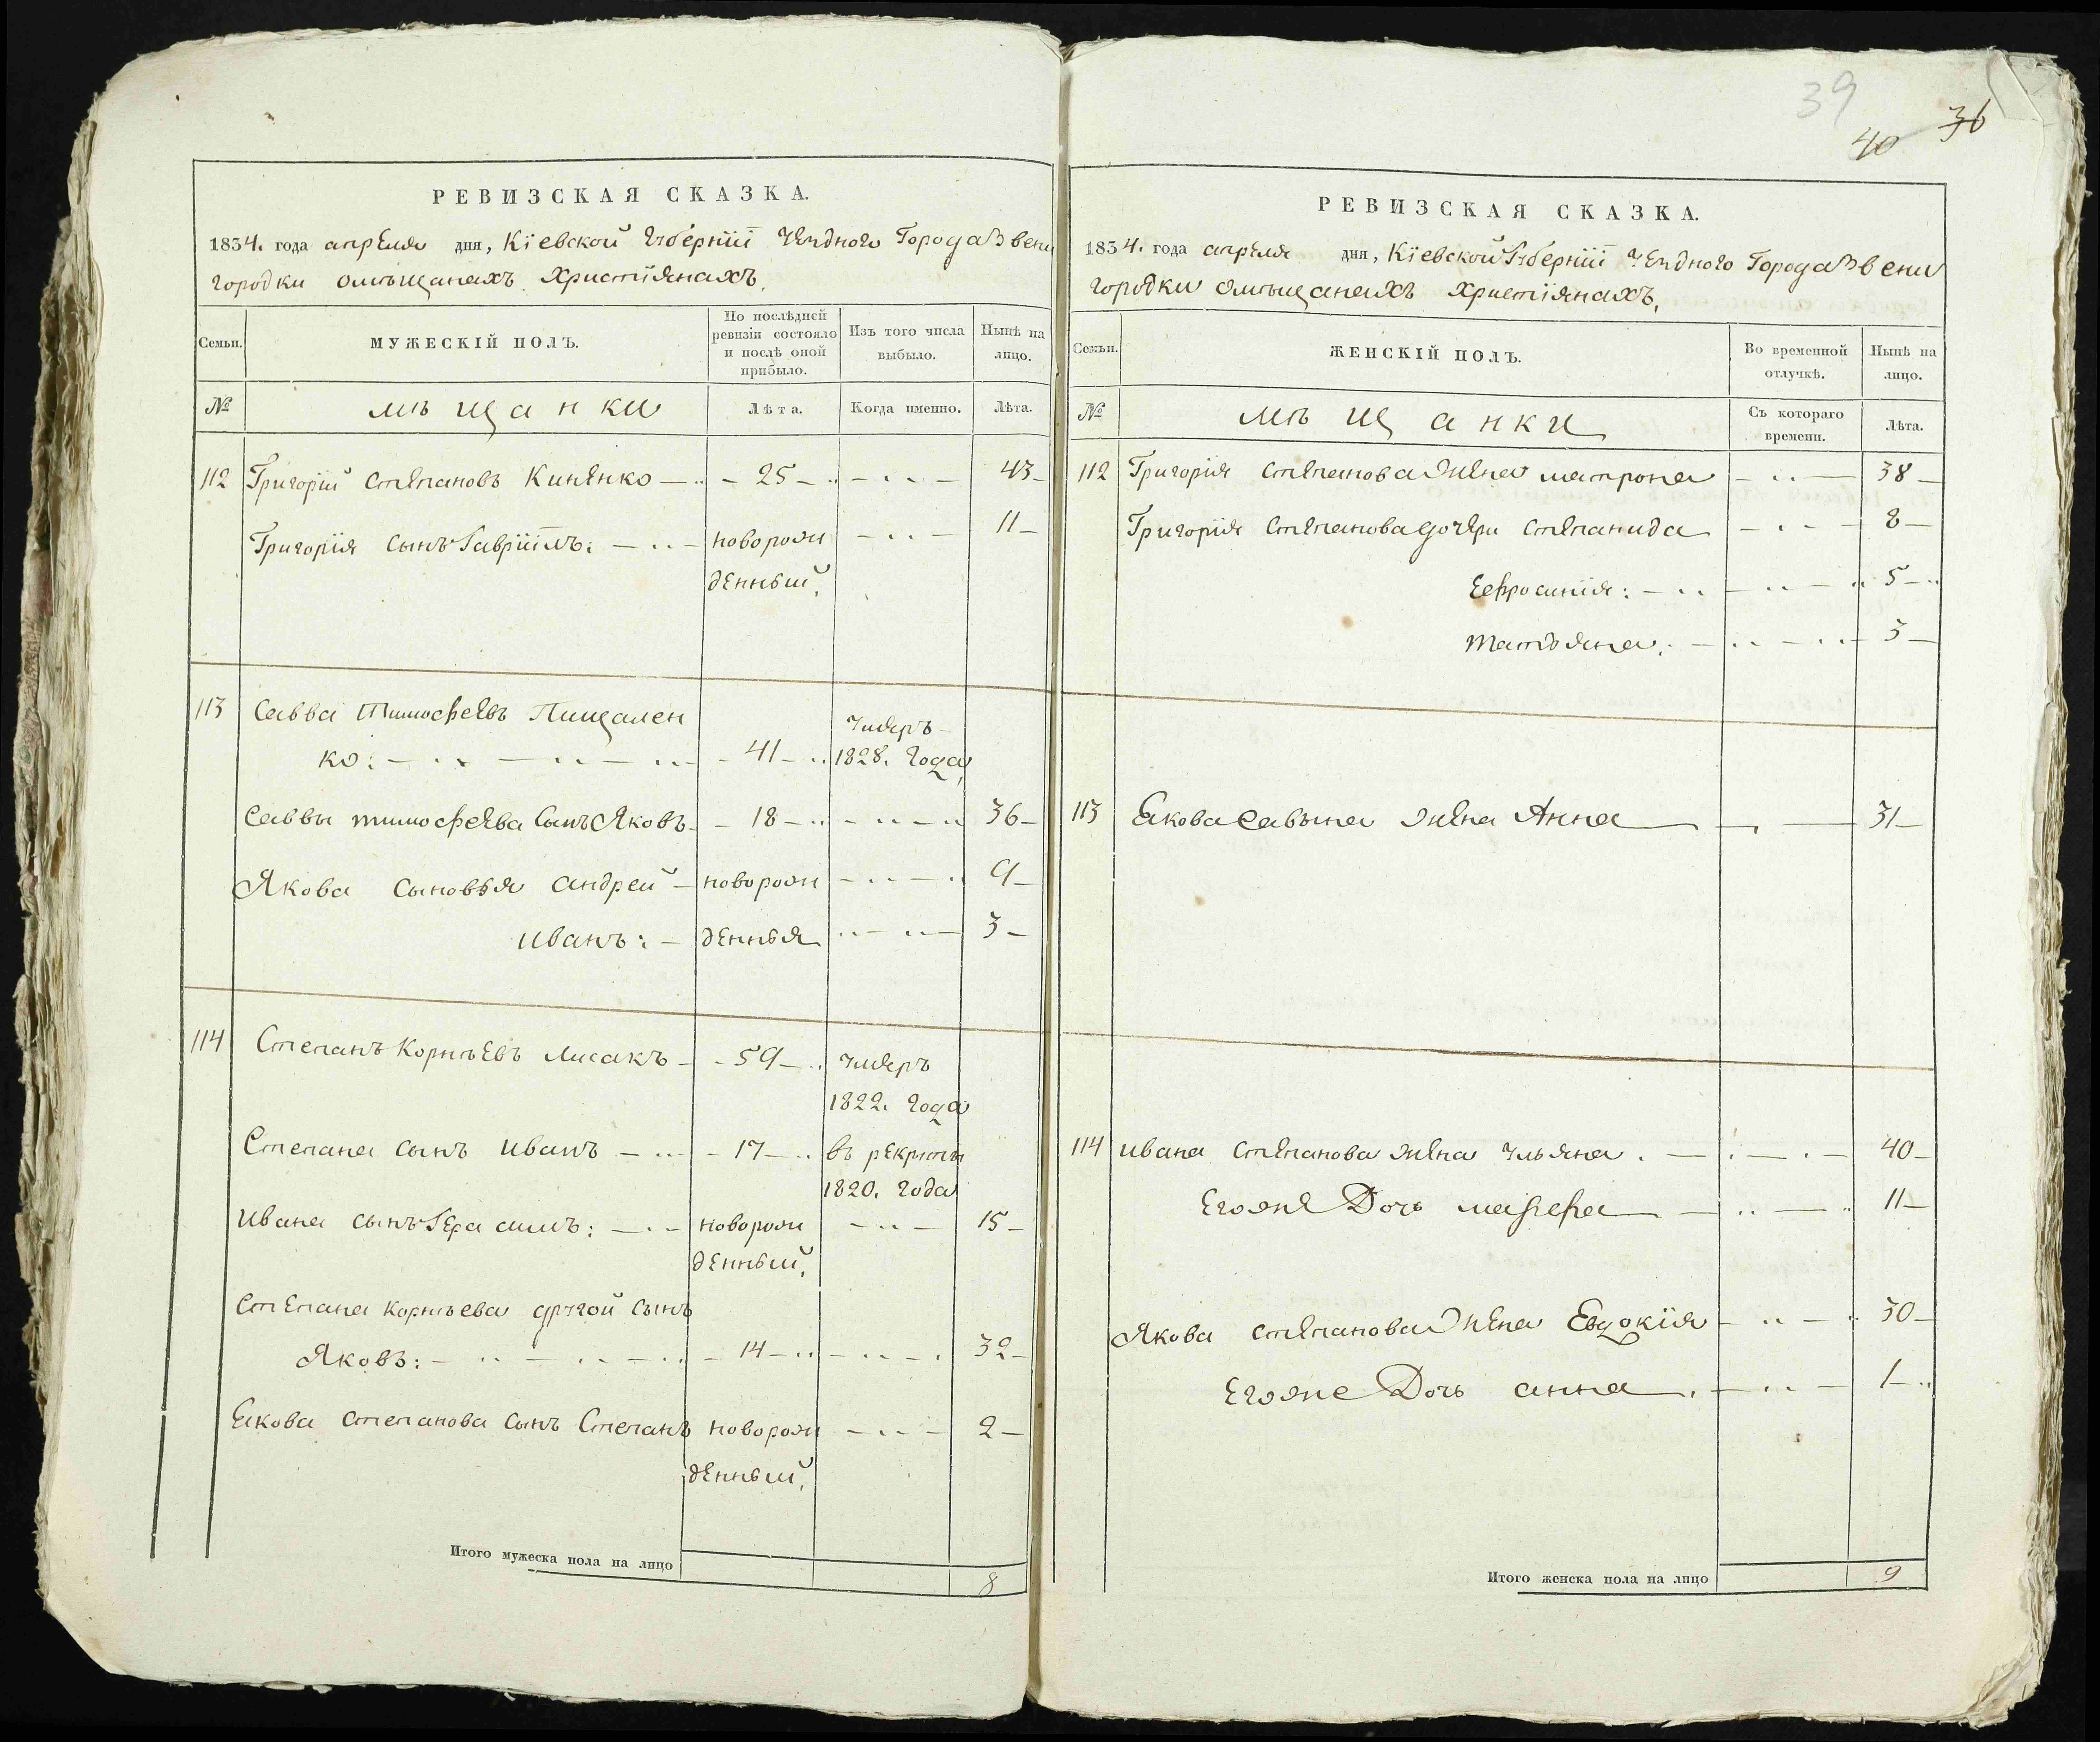 39
40 36
РЕВИЗСКАЯ СКАЗКА.
1834. года апреля дня, Кіевской Губерніи Уезднаго Города Звени
городки омѣщанахъ Христіянахъ.
Семьи. МУЖЕСКІЙ ПОЛЪ. По послѣдней ревизіи состояло и послѣ оной прибыло. Изъ того числа выбыло. Нынѣ на лицо.
№ мѣщанки Лѣта. Когда именно. Лѣта.
112 Григорій Степановъ Киненко 25 43
Григорія сынъ Гавріилъ: новорож 11
денный,
113 Савва Тимофеевъ Пищален
ко: 41 умеръ 1828. года,
Саввы тимофеева сынъ Яковъ 18 36
Якова сыновья андрей новорож 9
иванъ: денныя 3
114 Степанъ Корнѣевъ Лисакъ 59 умеръ
1822. года
Степана сынъ иванъ 17 въ рекруты
1820. года
ивана сынъ Герасимъ: новорож 15
денный,
Степана корнѣева другой сынъ
Яковъ: 14 32
Якова Степанова сынъ Степанъ новорож 2
денный,
Итого мужеска пола на лицо 8
РЕВИЗСКАЯ СКАЗКА.
1834. года апреля дня, Кіевской Губерніи Уезднаго Города Звени
городки омѣщанахъ христіянахъ,
Семьи. ЖЕНСКІЙ ПОЛЪ. Во временной отлучкѣ. Нынѣ на лицо.
№ мѣщанки Съ котораго времени. Лѣта.
112 Григорія степанова жена матрона 38
Григорія степанова дочери степанида 8
Ефросинія: 5
татьяна: 3
113 Якова савына жена Анна 31
114 ивана степанова жена ульяна. 40
Егоже Дочь марфа 11
Якова степанова жена Евдокія 30
Егоже Дочь анна. 1
Итого женска пола на лицо 9